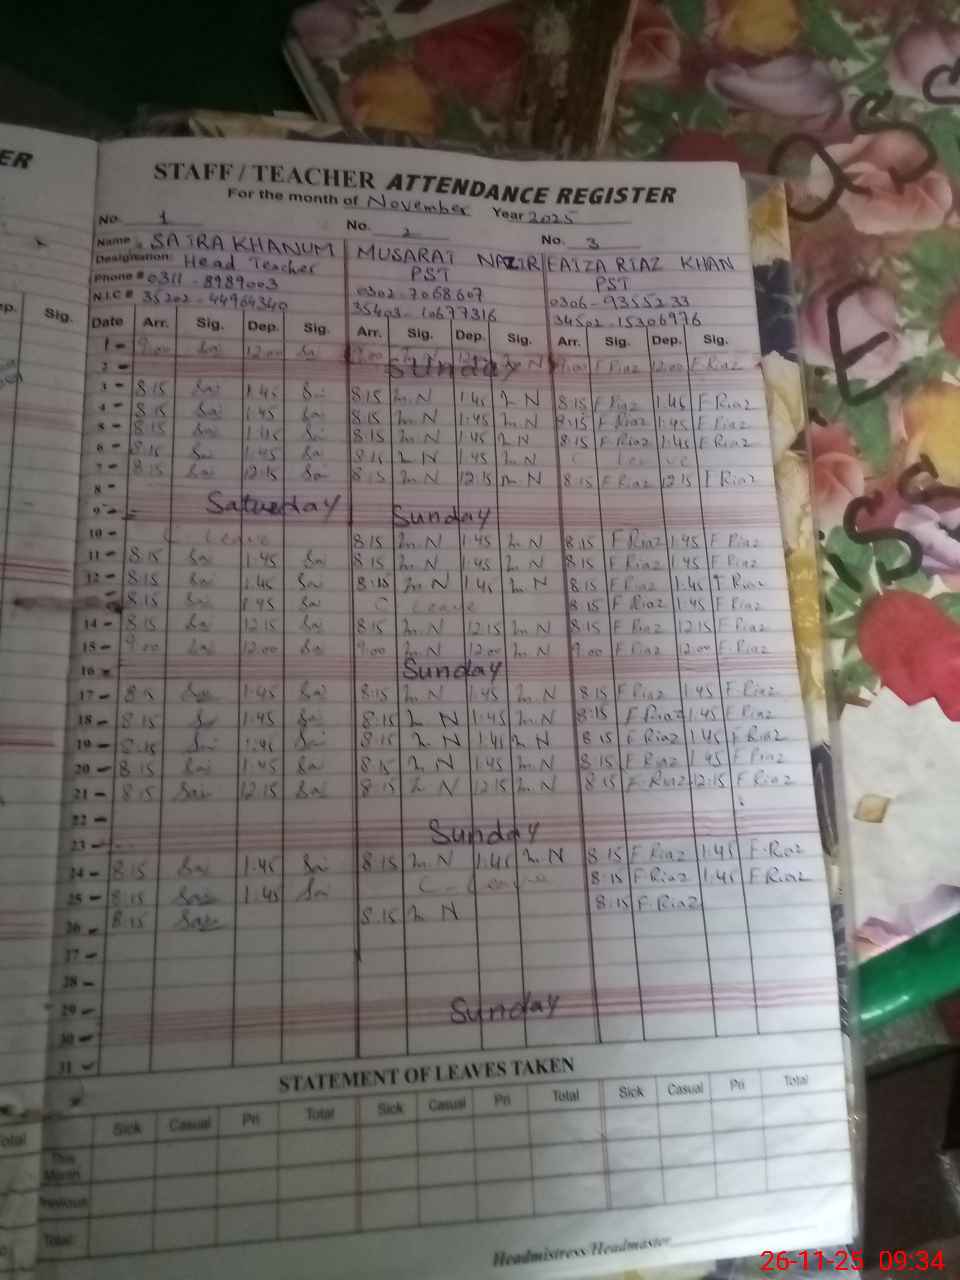 ER
STAFF / TEACHER ATTENDANCE REGISTER
For the month of November Year 2025
No. 1 No. 2 No. 3
Name SAIRA KHANUM MUSARAT NAZIR FAIZA RIAZ KHAN
Designation: Head Teacher PST PST
Phone # 0311-8989003 0302-7068607 0306-9355233
N.I.C # 35202-44964340 35403-10677316 34502-15306976
Sig. Date Arr. Sig. Dep. Sig. Arr. Sig. Dep. Sig. Arr. Sig. Dep. Sig.
1 - 9.00 Sai 12.00 Sai 9.00 9.00 F Riaz 12.00 F Riaz
2 - Sunday
3 - 8.15 Sai 1.45 Sai 8.15 M.N 1.45 M N 8.15 F Riaz 1.45 F Riaz
4 - 8.15 Sai 1.45 Sai 8.15 M.N 1.45 M.N 8.15 F Riaz 1.45 F Riaz
5 - 8.15 Sai 1.45 Sai 8.15 M N 1.45 M N 8.15 F Riaz 1.45 F Riaz
6 - 8.15 Sai 1.45 Sai 8.15 M N 1.45 M N C Leave
7 - 8.15 Sai 12.15 Sai 8.15 M N 12.15 M N 8.15 F Riaz 12.15 F Riaz
8 -
9 - Satueday Sunday
10 - C. Leave 8.15 M N 1.45 M N 8.15 F Riaz 1.45 F Riaz
11 - 8.15 Sai 1.45 Sai 8.15 M N 1.45 M N 8.15 F Riaz 1.45 F Riaz
12 - 8.15 Sai 1.45 Sai 8.15 M N 1.45 M N 8.15 F Riaz 1.45 F Riaz
8.15 Sai 1.45 Sai C Leave 8.15 F Riaz 1.45 F Riaz
14 - 8.15 Sai 12.15 Sai 8.15 M.N 12.15 M N 8.15 F Riaz 12.15 F Riaz
15 - 9.00 Sai 12.00 Sai 9.00 M N 12.00 M N 9.00 F Riaz 12.00 F.Riaz
16 - Sunday
17 - Sai 1.45 Sai 8.15 M N 1.45 M N 8.15 F Riaz 1.45 F.Riaz
18 - 8.15 1.45 Sai 8.15 M N 1.45 M.N 8.15 F Riaz 1.45 F Riaz
19 - 8.15 Sai 1.45 Sai 8.15 M N 1.45 M N 8.15 F Riaz 1.45 F Riaz
20 - 8.15 Sai 1.45 Sai 8.15 M N 1.45 M.N 8.15 F Riaz 1.45 F Riaz
21 - 8.15 Sai 12.15 Sai 8.15 M N 12.15 M N 8.15 F.Riaz 12.15 F Riaz
22 -
23 - Sunday
24 - 8.15 Sai 1.45 Sai 8.15 M.N 1.45 M N 8.15 F Riaz 1.45 F.Riaz
25 - 8.15 Sai 1.45 Sai C-Leave 8.15 F Riaz 1.45 F Riaz
26 - 8.15 Sai 8.15 M N 8.15 F.Riaz
27 -
28 -
29 - Sunday
30 -
31 -
STATEMENT OF LEAVES TAKEN
Sick Casual Pri Total Sick Casual Pri Total Sick Casual Pri Total
This Month
Previous
Total:
Headmistress/Headmaster
26-11-25 09:34